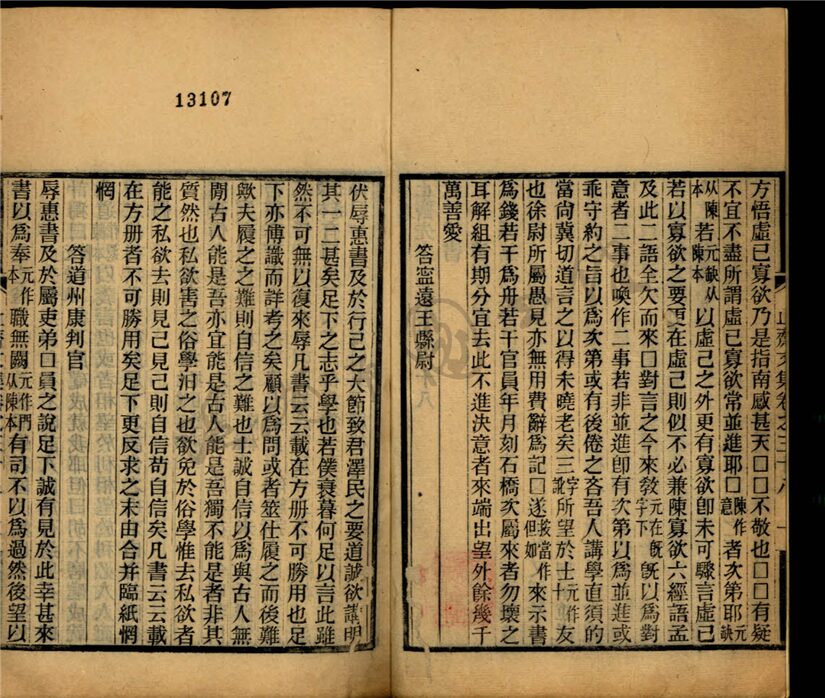 方悟虛己寡欲乃是指南感甚天□□不敬也□□有疑
不宜不盡所謂虛己寡欲常並進耶□陳作意者次第耶元缺
從陳本若元缺從陳本以虛己之外更有寡欲卽未可驟言虛己
若以寡欲之要更在虛己則似不必兼陳寡欲六經語孟
及此二語全欠而來□對言之今來敎元在旣字下旣以爲對
意者二事也喚作二事若非並進卽有次第以爲並進或
乖守約之旨以爲次第或有後倦之吝吾人講學直須的
當尙冀切道言之以得未曉老矣三字訛所望於士元作十友
也徐尉所屬愚見亦無用費辭爲記□遂按當作但如來示書
爲錢若干爲舟若干官員年月刻石橋次屬來者勿壞之
耳解組有期分宜去此不進決意者來端出望外餘幾千
萬善愛
答寧遠王縣尉
伏辱惠書及於行己之大節致君澤民之要道誠欲講明
其一二甚矣足下之志乎學也若僕衰暮何足以言此雖
然不可無以復來辱凡書云云載在方册不可勝用也足
下亦博識而詳考之矣顧以爲問或者筮仕履之而後難
歟夫履之之難則自信之難也士誠自信以爲與古人無
閒古人能是吾亦宜能是古人能是吾獨不能是者非其
質然也私欲害之俗學汨之也欲免於俗學惟去私欲者
能之私欲去則見己見己則自信苟自信矣凡書云云載
在方册者不可勝用矣足下更反求之未由合并臨紙惘
惘
答道州康判官
辱惠書及於屬吏弟□員之說足下誠有見於此幸甚來
書以爲奉元作本職無闕元作門從陳本有司不以爲過然後望以
13107
止齋文集卷之三十八
一